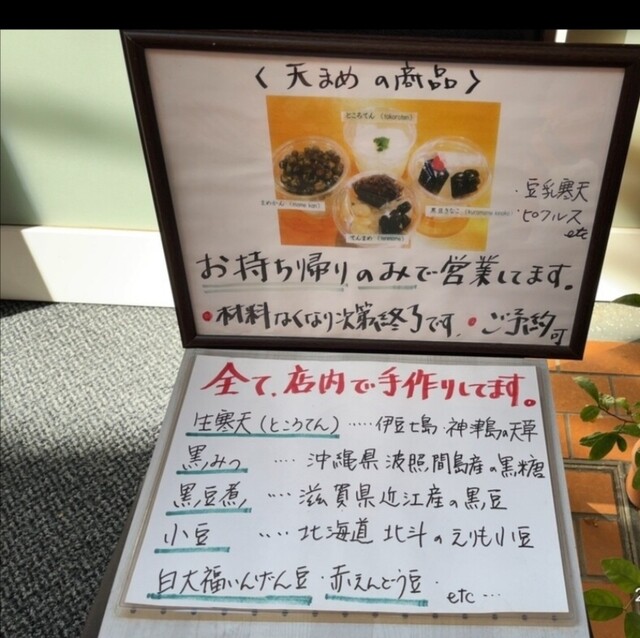 〈天まめの商品〉
ところてん (tokoroten)
まめかん (mame kan)
てんまめ (tenmame)
黒豆きなこ
・豆乳寒天
・ピクルス
etc
お持ち帰りのみで営業してます。
・材料なくなり次第終了です。・ご予約可
全て、店内で手作りしてます。
生寒天(ところてん)‥‥‥伊豆七島・神津島の天草
黒みつ ‥‥ 沖縄県 波照間島産の黒糖
黒豆煮 ‥‥ 滋賀県近江産の黒豆
小豆 ‥‥ 北海道 北斗のえりも小豆
白大福いんげん豆・赤えんどう豆・etc…